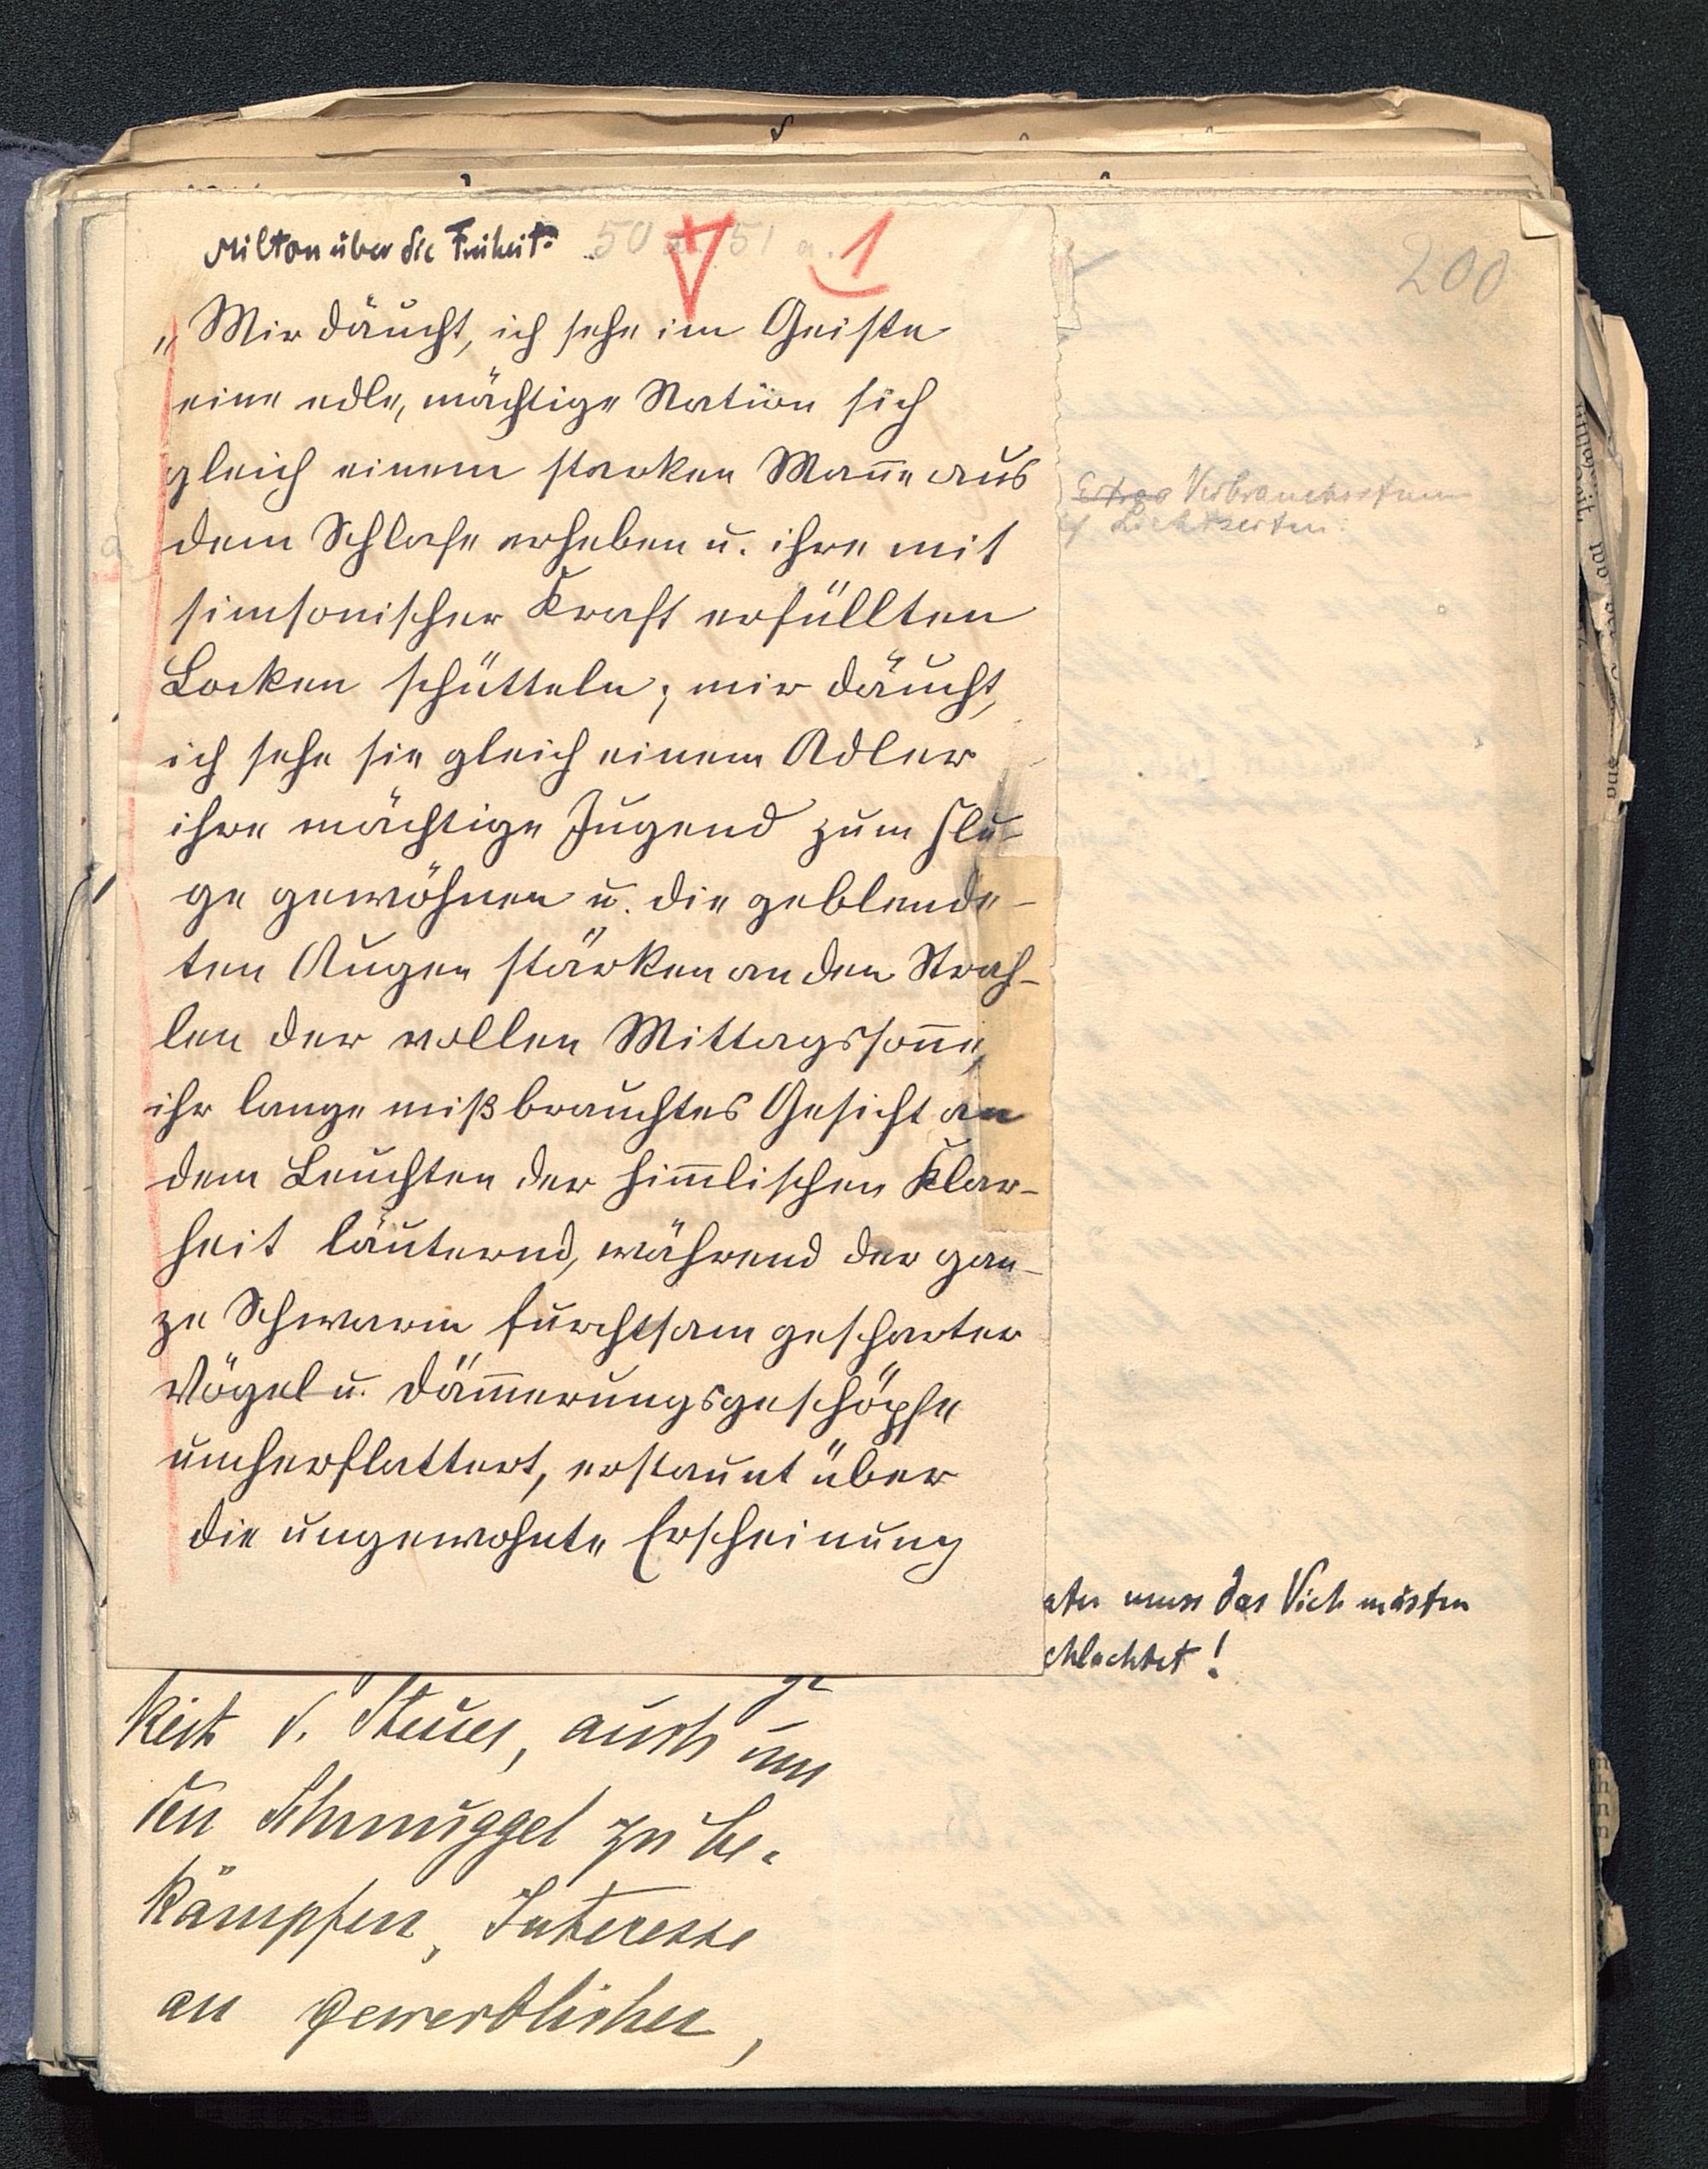 Milton über die Freiheit:
50 51 a. 1
200
„Mir däucht, ich sehe im Geiste
eine edle, mächtige Nation sich
gleich einem starken Mañe aus
dem Schlafe erheben u. ihre mit
simsonischer Kraft erfüllten
Locken schütteln; mir däucht,
ich sehe sie gleich einem Adler
ihre mächtige Jugend zum Flu-
ge gewöhnen u. die geblende-
ten Augen stärken an den Strah-
len der vollen Mittagssoñe,
ihr lange mißbrauchtes Gesicht an
dem Leuchten der him̅lischen Klar-
heit läuternd, während der gan-
ze Schwarm furchtsam gescharter
Vögel u. Däm̅erungsgeschöpfe
umherflattert, erstaunt über
die ungewohnte Erscheinung
Verbrauchssteuern
muss das Vieh mästen
chlachtet!
keit d. Steuer, auch um
den Schmuggel zu be-
kämpfen, Interesse
an gewerblicher,